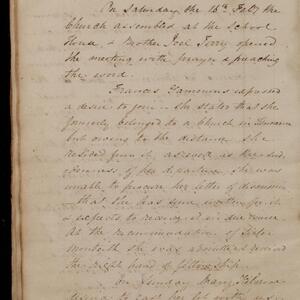 On Saturday the 15th Feby the
Church assembled at the School
House & Brother Joel Terry opened
the meeting with prayer & preaching
the word.
Frances exposed
a desire to join — she states that she
formerly belonged to a Church in
but owing to the distance she
resided from it, as well as the sud-
denness of her departure she was
unable to procure her letter of dismission
— that she has sent written for it
& expects to receive it in due time
At the recommendation of Sister
Monteith she was
the right hand of fellowship.
On Sunday Mary